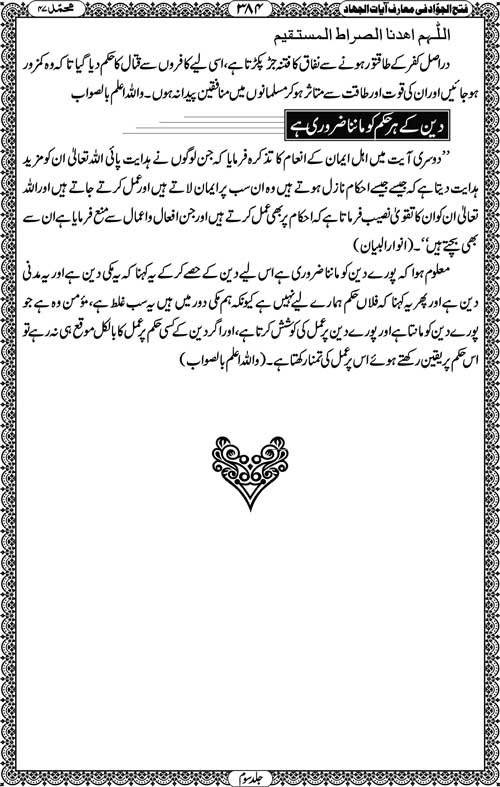 فتح الجوّاد فی معارف آیات الجهاد
۳۸۴
محمّد ۴۷
اللّٰہم اھدنا الصراط المستقیم
دراصل کفر کے طاقتور ہونے سے نفاق کا فتنہ جڑ پکڑتا ہے، اسی لیے کافروں سے قتال کا حکم دیا گیا تا کہ وہ کمزور
ہو جائیں اور ان کی قوت اور طاقت سے متاثر ہو کر مسلمانوں میں منافقین پیدا نہ ہوں۔ واللہ اعلم بالصواب
دین کے ہر حکم کو ماننا ضروری ہے
’’دوسری آیت میں اھل ایمان کے انعام کا تذکرہ فرمایا کہ جن لوگوں نے ہدایت پائی اللہ تعالیٰ ان کو مزید
ہدایت دیتا ہے کہ جیسے جیسے احکام نازل ہوتے ہیں وہ ان سب پر ایمان لاتے ہیں اور عمل کرتے جاتے ہیں اور اللہ
تعالیٰ ان کو ان کا تقویٰ نصیب فرماتا ہے کہ احکام پر بھی عمل کرتے ہیں اور جن افعال و اعمال سے منع فرمایا ہے ان سے
بھی بچتے ہیں‘‘۔ (انوار البیان)
معلوم ہوا کہ پورے دین کو ماننا ضروری ہے اس لیے دین کے حصے کر کے یہ کہنا کہ یہ مکی دین ہے اور یہ مدنی
دین ہے اور پھر یہ کہنا کہ فلاں حکم ہمارے لیے نہیں ہے کیونکہ ہم مکی دور میں ہیں یہ سب غلط ہے، مؤمن وہ ہے جو
پورے دین کو مانتا ہے اور پورے دین پر عمل کی کوشش کرتا ہے، اور اگر دین کے کسی حکم پر عمل کا بالکل موقع ہی نہ رہے تو
اس حکم پر یقین رکھتے ہوئے اس پر عمل کی تمنا رکھتا ہے۔ (واللہ اعلم بالصواب)
جلد سوم